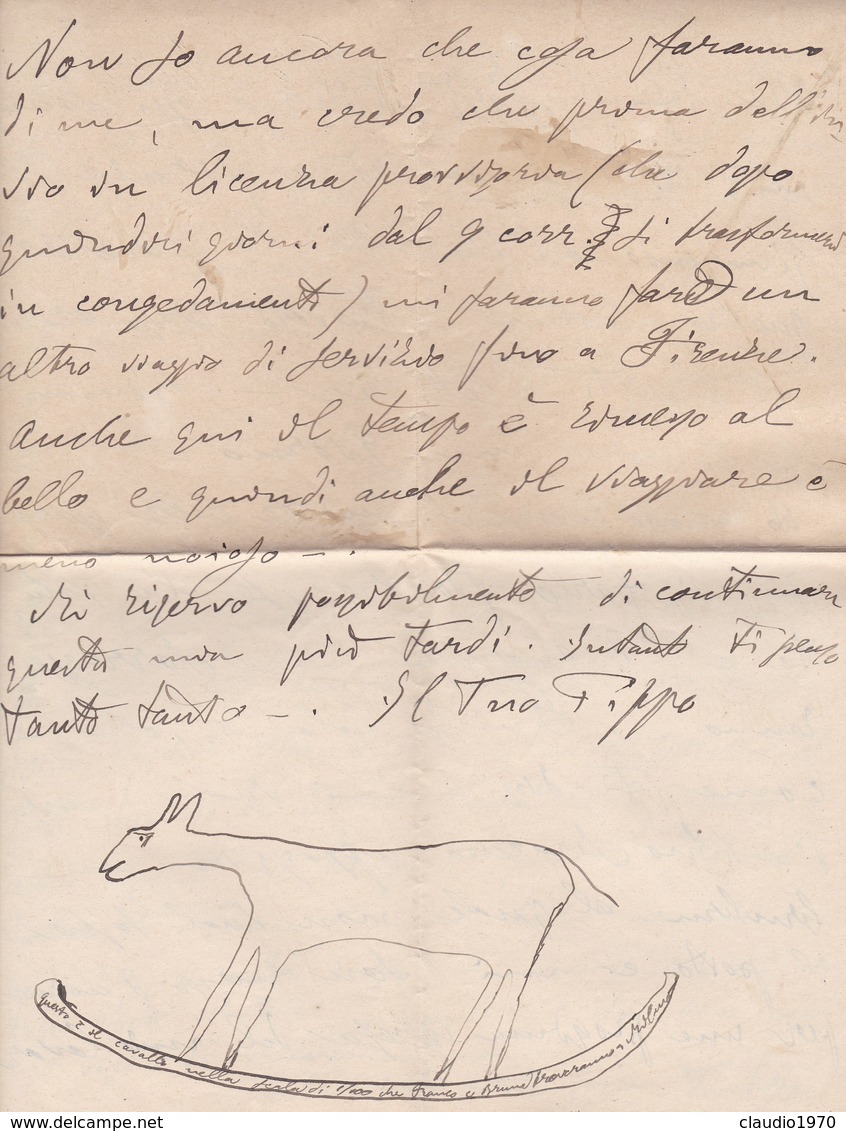 Non so ancora che cosa faranno
di me, ma credo che prima dell'in-
vio in licenza provvisoria (che dopo
quindici giorni dal 9 corr. si trasformerà
in congedamento) mi faranno fare un
altro viaggio di servizio fino a Firenze.
Anche qui il tempo è rimesso al
bello e quindi anche il viaggiare è
meno noioso -.
Mi riservo possibilmente di continuare
questa mia più tardi. Intanto ti penso
tanto tanto -. Il Tuo Pippo
questo è il cavallo nella scala di 1/100 che Franco e Bruno troveranno a Milano
claudio1970